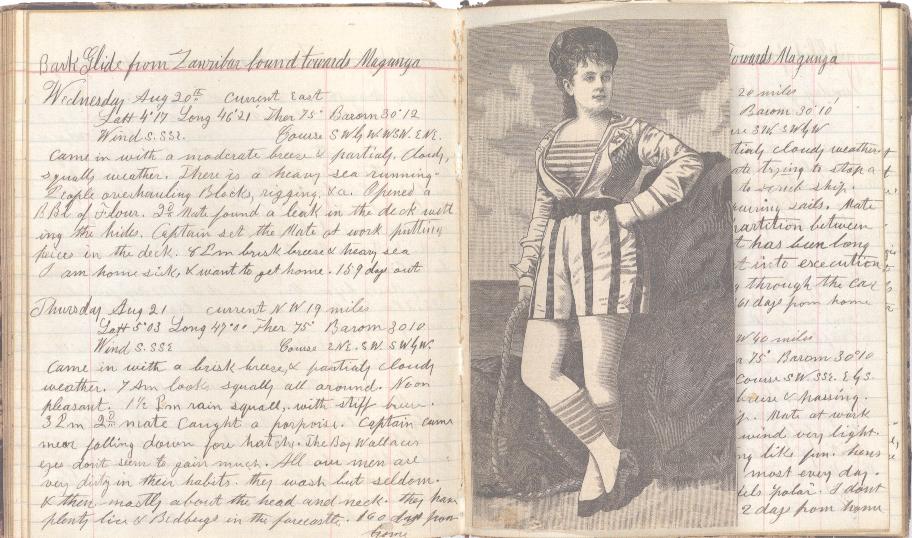 Bark Glide from Zanzibar bound towards Magunga
Wednesday Aug 20th current East
Latt 4°17 Long 46°21' Ther 75° Barom 30°12
Wind S. SSE. Course SWbyW WSW. ENE.
Came in with a moderate breeze & partialy cloudy,
squally weather. There is a heavy sea running.
People overhauling Blocks, rigging, &a. Opened a
BBl of Flour. 2nd Mate found a leak in the deck wett
ing the hides. Captain set the Mate at work putting
peices in the deck. 8 P.m brisk breeze & heavy sea
I am home sick, & want to get home. 159 days out
Thursday Aug 21 current N W 19 miles
Latt 5°03 Long 47°00 Ther 75° Barom 3010
Wind S. SSE Course ENE. SW. SWbyW.
Came in with a brisk breeze, & partialy cloudy
weather. 7 Am looks squally all around. Noon
pleasant. 1½ P.m rain squall, with stiff breeze.
3 P.m 2nd mate caught a porpoise. Captain came
near falling down fore hatch. The Boy Wallaces
eyes dont seem to gain much. All our men are
very dirty in their habits. they wash but seldom.
& then mostly about the head and neck. they have
plenty lice & Bedbugs in the forecastle. 160 days from
home
towards Magunga
20 miles
Barom 30°10'
SWbyW
cloudy weather.
ate trying to stop a
ship.
sails. Mate
partition between
t has been long
t into execution
through the car
61 days from home
W 40 miles
75° Barom 30°10
Course SW. SSE. EbyS.
breeze & hasing.
Mate at work
wind very light.
ng like fun. hens
most every day.
"Polar". I dont
2 days from home